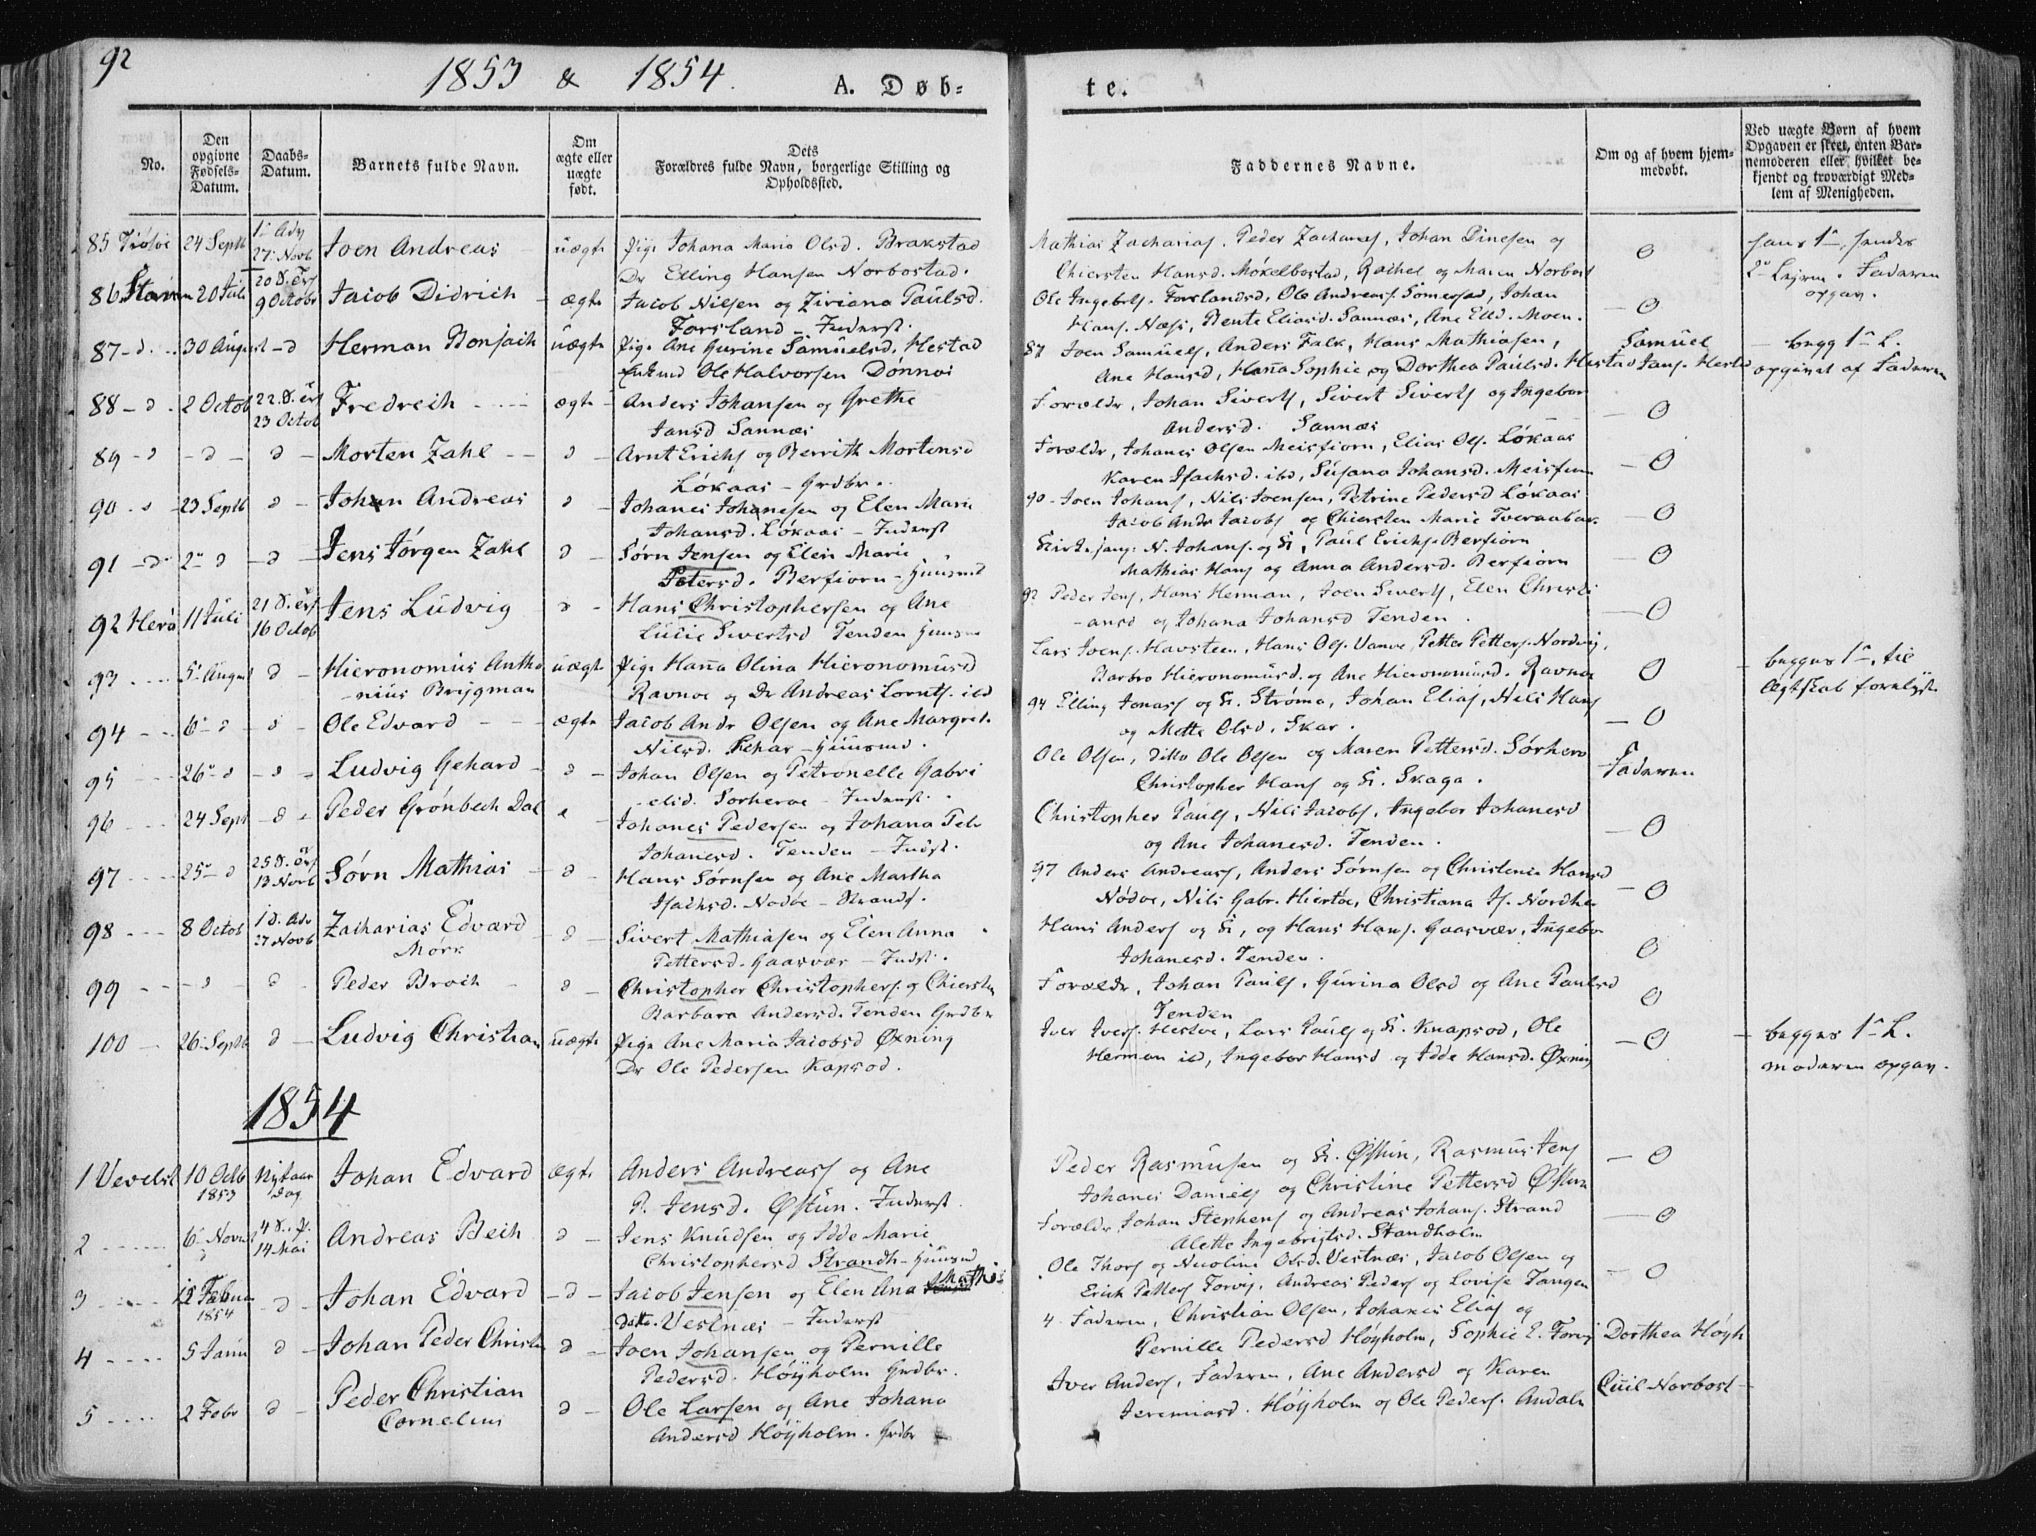 92
1853 & 1854.
A. Døb-
te.
No.
Den opgivne Fødsels-Datum.
Daabs-Datum.
Barnets fulde Navn.
Om ægte eller uægte født.
Dets Forældres fulde Navn, borgerlige Stilling og Opholdssted.
Faddernes Navne.
Om og af hvem hjem-medøbt.
Ved uægte Børn af hvem Opgaven er skeet, enten Bar-nemoderen eller hvilket be-kjendt og troværdigt Med-lem af Menigheden.
85 24 Septb 27 Novb Joen Andreas uægte Pige Johana Maria Olsd. Brakstad
Dr Elling Hansen Norbostad.
Mathias Zacharias. Peder Zacharias, Johan Dinesen og
Chiersten Hansd. Møkelbostad, Rachel og Maren Norbost
0
86 20 Juli 9 Octobr Jacob Didrich - ægte Jacob Nilsen og Ziriana Paulsd.
Forsland - Inderst.
Ole Ingebrts. Forslandsd, Ole Andreas. Sømersad, Johan
Hans. Næss, Bente Eliasd. Sannæs, Ane Elld. Moen.
- 0
Faderen
opgav.
87 - d. 30 August - d Herman Bonsach uægte Pige Ane Gurine Samuelsd. Hestad
Ole Halvorsen Dønnæs
87 Joen Samuels, Anders Falk, Hans Mathiasen,
Ane Hansd, Hanna Sophie og Dorthea Paulsd. Hestad
Samuel
Hestad
- begg 1ste L.
opgivet af Faderen
88 - d. 2 Octob 23 Octob Fredrich ægte - Anders Johansen og Grethe
Jansd Sannæs
Forældr, Johan Siverts, Sivert Siverts og Ingebor
Andersd. Sannæs
- 0
89 - d - d - d - Morten Zahl - - d - Arnt Erichs og Berrith Mortensd
Løkaas - Grdbr.
Forældr, Johanes Olsen Meisfiorn, Elias Ols. Løkaas
Karen Isachsd. ibd, Susana Johansd. Meisfiorn
- 0
90 - d 23 Septb d - Johan Andreas d - Johanes Johanesen og Elen Marie
Johansd. Løkaas - Inderst
90 - Joen Johans, Nils Joensen, Petrine Pedersd Løkaas
Jacob Andr Jacobs og Chiersten Marie Tveraabak
- 0
91 - d - 2 - d - d - Jens Jørgen Zahl d - Sørn Jensen og Elen Marie
Petersd. Berfiorn - Huusmd
N. Johans. og K, Paul Erichs. Berfiorn
Mathias Hans og Anna Andersd. Berfiorn
- 0
92 Herø 11 Juli 16 Octob Jens Ludvig d - Hans Christophersen og Ane
Lucie Sivertsd Tenden Huusmd
92 Peder Jens, Hans Herman, Joen Siverts, Elen Christi
-ansd og Johana Johansd Tenden.
- 0
93 5 August d - Hieronomus Antho
-nius Brygman uægte Pige Hanna Olina Hieronomusd
Ravnøe og Dr Andreas Lornts. ibd
Lars Joens. Havsteen, Hans Ols. Petter Petters. Nordvig,
Barbro Hieronomusd. og Ane Hieronomusd. Ravnøe
0
- begges 1ste, til
Ægteskab forenlyst
94 - - 6 - d d - Ole Edvard - - - ægte Jacob Andr Olsen og Ane Margret.
Nilsd. Schar - Huusmd.
94 Elling Jonass og K. Strømø, Johan Elias, Nils Hans
og Mette Olsd. Skar.
- 0
95 26 - d - d - Ludvig Gehard - d - Johan Olsen og Petronelle Gabri
-elsd. Sørherøe - Inderst.
Ole Olsen, ditto Ole Olsen og Maren Pettersd. Sørherø
Christopher Hans og K. Skaga.
Faderen
96 24 Sept - d - Peder Grønbech Dal d Johanes Pedersen og Johana
Johanesd. Tenden - Indst.
Christopher Pauls, Nils Jacobs, Ingebor Johanesd
og Ane Johanesd. Tenden.
- 0
97 25 - d 13 Novb Sørn Mathias - d - Hans Sørnsen og Ane Martha
Isachsd. Nødøe - Strands.
97 Anders Andreas, Anders Sørnsen og Christence Hansd
Nødøe, Nils Gabr. Hiertøe, Christiana
- 0
98 8 Octob 27 Novb Zacharias Edvard
Mørk - d - Sivert Mathiasen og Elen Anna
Pettersd. Gaasvær - Indst.
Hans Anders og K, og Hans Hans. Gaasvær, Ingebor
Johanesd. Tenden.
0
99 - d d Peder Broch - d - Christopher Christophers. og Chiersten
Barbara Andersd. Tenden Grdbr
Forældr, Johan Pauls, Gurina Olsd og Ane Paulsd
Tenden
0
100 26 Septb d - Ludvig Christian uægte Pige Ane Maria Jacobsd Øxning
Dr Ole Pedersen Kapsod.
Iver Ivers. Hestøe, Lars Pauls og K. Knapsod, Ole
Herman ibd, Ingebor Hansd og Idde Hansd. Øxning
- 0
- begges 1ste L.
moderen opgav.
1854
1 Vevelst 10 Octb
1853 Nytaars
dag Johan Edvard ægte Anders Andreass og Ane
P. Jensd. Østun. Inderst.
Peder Rasmusen og K. Østun, Rasmus Jens
Johanes Daniels og Christine Pettersd Østun
- 0
2 6 Novbr
14 Mai Andreas Bech d - Jens Knudsen og Idde Marie
Christophersd Strandh - Huusmd
Forældr Johan Stephens og Andreas Johans. Strand
Alette Ingebrigtsd. Standholm
- 0
3 12 Februar
1854 - d - Johan Edvard - d - Jacob Jensen og Elen Ana Mathis
datt. Vestnæs - Inderst
Ole Thors og Nicoline Olsd. Vestnæs, Jacob Olsen og
Erick Petters Forvig, Andreas Peders og Lovise Tangen
- 0
4 5 Janu d - Johan Peder Christian d - Joen Johansen og Pernille
Pedersd. Høyholm Grdbr.
4. Faderen, Christian Olsen, Johanes Elias og
Pernille Pedersd Høyholm, Sophie E. Forvig
Dorthea Høyh
5 2 Febr d - Peder Christian
Cornelius d - Ole Larsen og Ane Johana
Andersd Høyholm. Grdbr
Iver Anders, Faderen, Ane Andersd og Karen
Jeremiasd. Høyholm og Ole Peders. Andaln
Norbost -